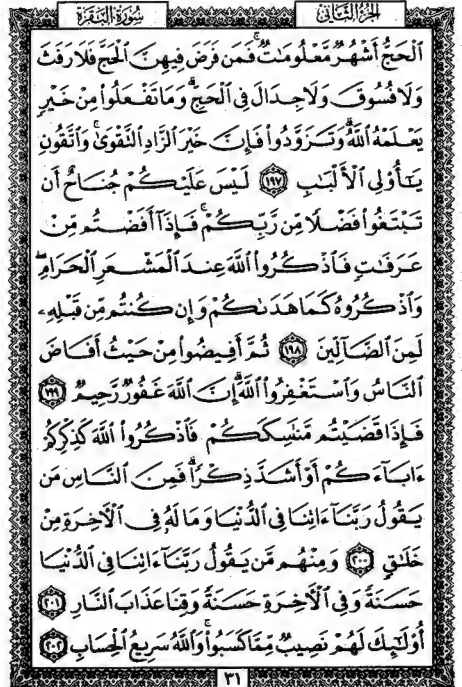 سُورَةُ الْبَقَرَةِ الجزء الثاني
ٱلْحَجُّ أَشْهُرٌ مَّعْلُومَـٰتٌ ۚ فَمَن فَرَضَ فِيهِنَّ ٱلْحَجَّ فَلَا رَفَثَ
وَلَا فُسُوقَ وَلَا جِدَالَ فِى ٱلْحَجِّ ۗ وَمَا تَفْعَلُوا۟ مِنْ خَيْرٍ
يَعْلَمْهُ ٱللَّهُ ۗ وَتَزَوَّدُوا۟ فَإِنَّ خَيْرَ ٱلزَّادِ ٱلتَّقْوَىٰ ۚ وَٱتَّقُونِ
يَـٰٓأُو۟لِى ٱلْأَلْبَـٰبِ ١٩٧ لَيْسَ عَلَيْكُمْ جُنَاحٌ أَن
تَبْتَغُوا۟ فَضْلًا مِّن رَّبِّكُمْ ۚ فَإِذَآ أَفَضْتُم مِّنْ
عَرَفَـٰتٍ فَٱذْكُرُوا۟ ٱللَّهَ عِندَ ٱلْمَشْعَرِ ٱلْحَرَامِ ۖ
وَٱذْكُرُوهُ كَمَا هَدَىٰكُمْ وَإِن كُنتُم مِّن قَبْلِهِۦ
لَمِنَ ٱلضَّآلِّينَ ١٩٨ ثُمَّ أَفِيضُوا۟ مِنْ حَيْثُ أَفَاضَ
ٱلنَّاسُ وَٱسْتَغْفِرُوا۟ ٱللَّهَ ۚ إِنَّ ٱللَّهَ غَفُورٌ رَّحِيمٌ ١٩٩
فَإِذَا قَضَيْتُم مَّنَـٰسِكَكُمْ فَٱذْكُرُوا۟ ٱللَّهَ كَذِكْرِكُمْ
ءَابَآءَكُمْ أَوْ أَشَدَّ ذِكْرًا ۗ فَمِنَ ٱلنَّاسِ مَن
يَقُولُ رَبَّنَآ ءَاتِنَا فِى ٱلدُّنْيَا وَمَا لَهُۥ فِى ٱلْأَخِرَةِ مِنْ
خَلَـٰقٍ ٢٠٠ وَمِنْهُم مَّن يَقُولُ رَبَّنَآ ءَاتِنَا فِى ٱلدُّنْيَا
حَسَنَةً وَفِى ٱلْأَخِرَةِ حَسَنَةً وَقِنَا عَذَابَ ٱلنَّارِ ٢٠١
أُو۟لَـٰٓئِكَ لَهُمْ نَصِيبٌ مِّمَّا كَسَبُوا۟ ۚ وَٱللَّهُ سَرِيعُ ٱلْحِسَابِ ٢٠٢
٣١